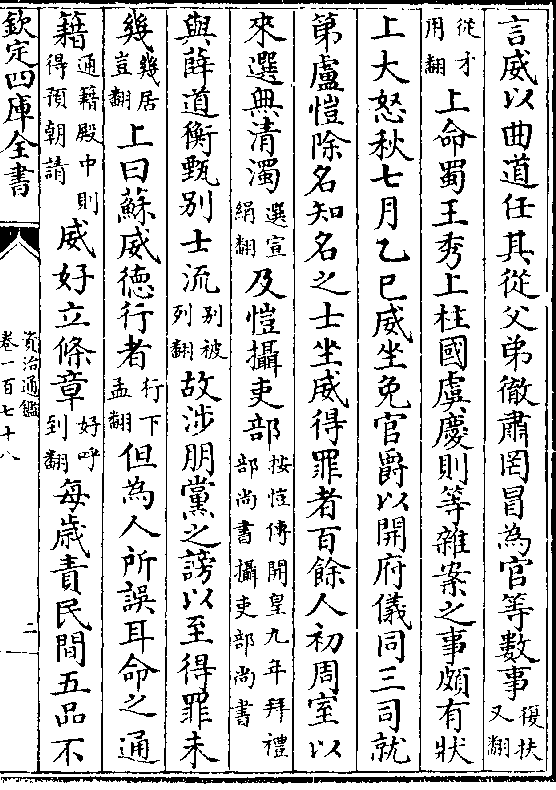 言威以曲道任其從父弟徹肅罔冒為官等數事復扶又翻
從才用翻上命蜀王秀上柱國虞慶則等雜案之事頗有狀
上大怒秋七月乙巳威坐免官爵以開府儀同三司就
第盧愷除名知名之士坐威得罪者百餘人初周室以
來選無清濁選宣絹翻及愷攝吏部按愷傳開皇九年拜禮部尚書攝吏部尚書
與薛道衡甄别士流别被列翻故涉朋黨之謗以至得罪未
幾幾居豈翻上曰蘇威德行者行下孟翻但為人所誤耳命之通
籍通籍殿中則得預朝請威好立條章好呼到翻每歲責民間五品不
欽定四庫全書
資治通鑑
卷一百七十八
二